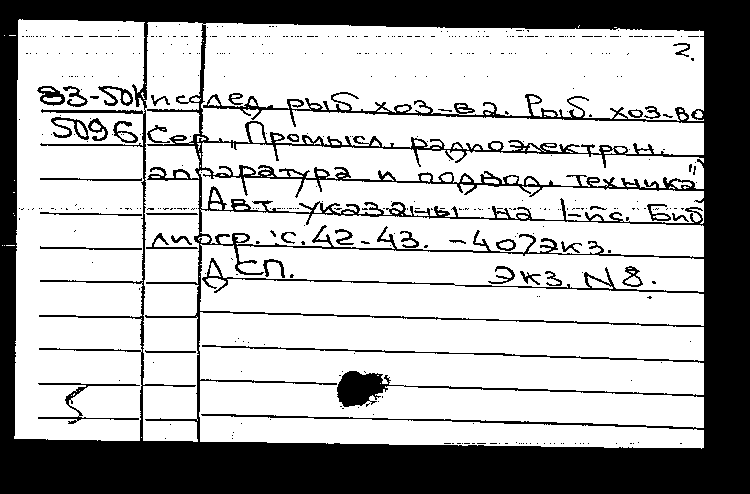 2.
83-50К исслед. рыб. хоз-ва. Рыб. хоз-во
5096 Сер. "Промысл. радиоэлектрон.
аппаратура и подвод. техника"
Авт. указаны на 1-й с. Биб
лиогр.: с. 42-43. - 407экз.
ДСП. Экз. N 8.
5